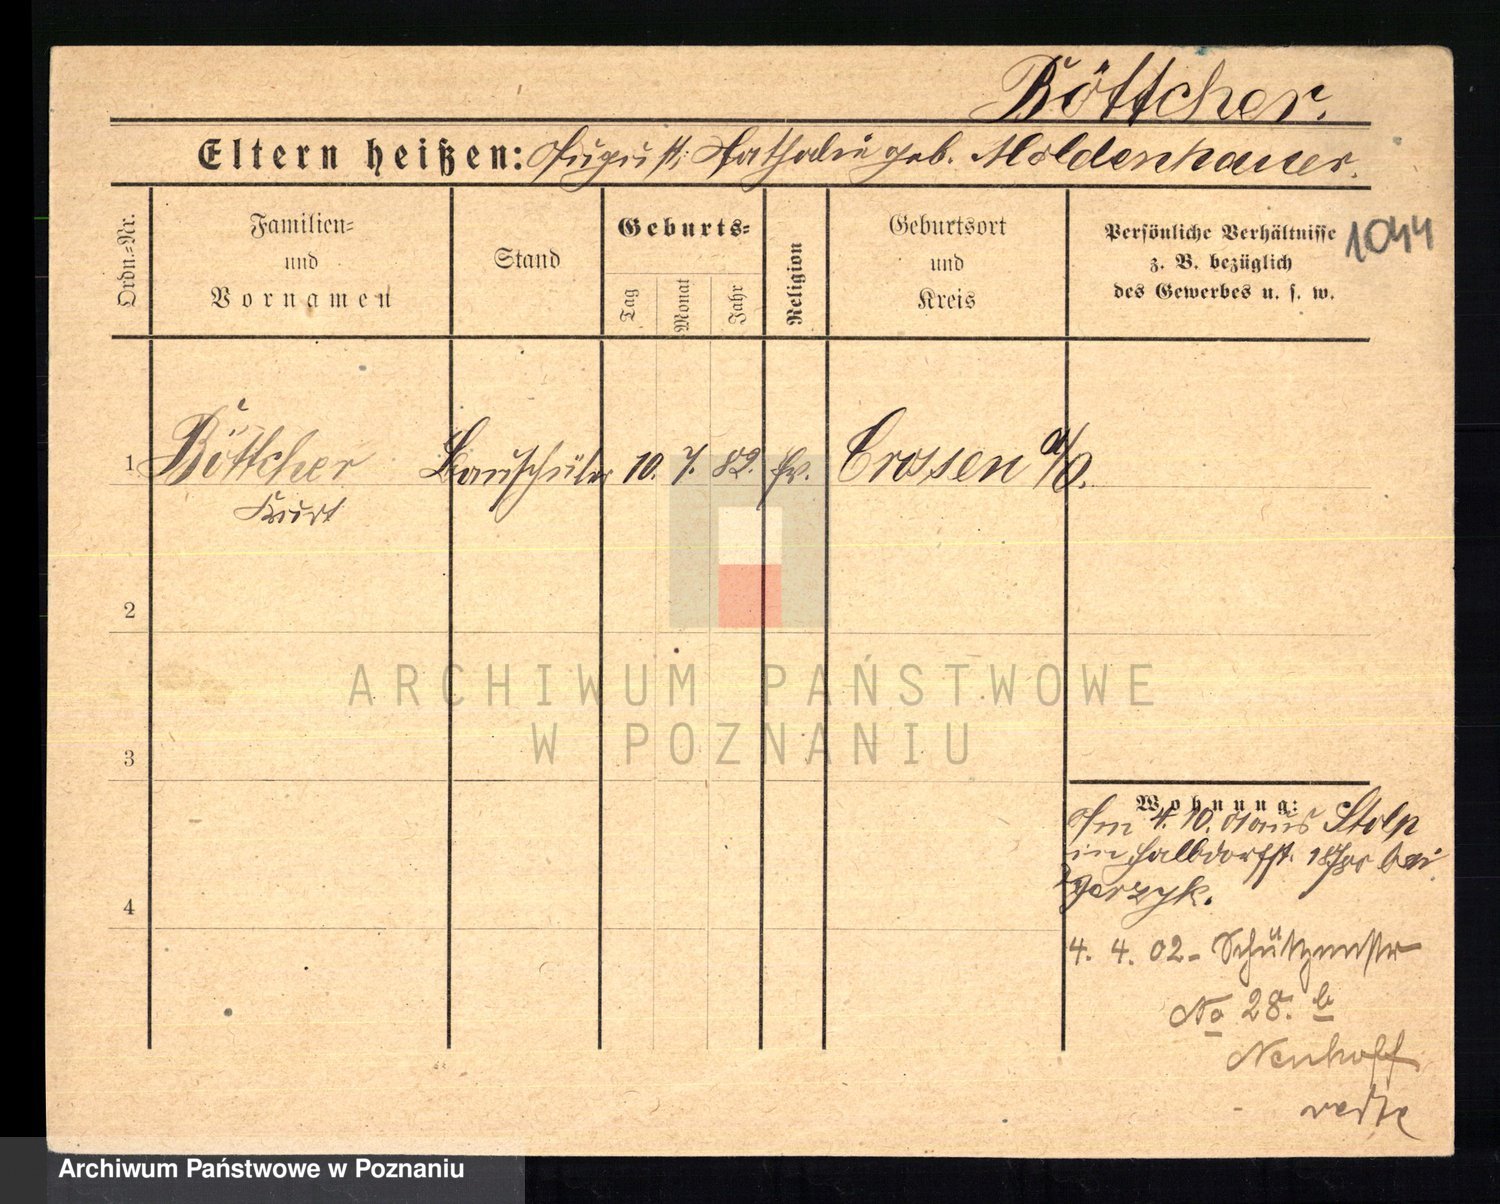 Böttcher.
Eltern heißen: August, Nathalie geb. Moldenhauer.
1044
Ordn.-Nr.
Familien-
und
Vornamen
Stand
Geburts-
Tag
Monat
Jahr
Religion
Geburtsort
und
Kreis
Persönliche Verhältnisse
z. B. bezüglich
des Gewerbes u. s. w.
1 Böttcher Bauschüler 10. 7. 82. Ev. Crossen a/O.
Kurt
2
3
4
Wohnung:
Am 4. 10. 01 aus Stolp
in Halbdorfst. bei
4. 4. 02 - Schützenstr
No 28. b
Neuhoff
ARCHIWUM PAŃSTWOWE
W POZNANIU
Archiwum Państwowe w Poznaniu